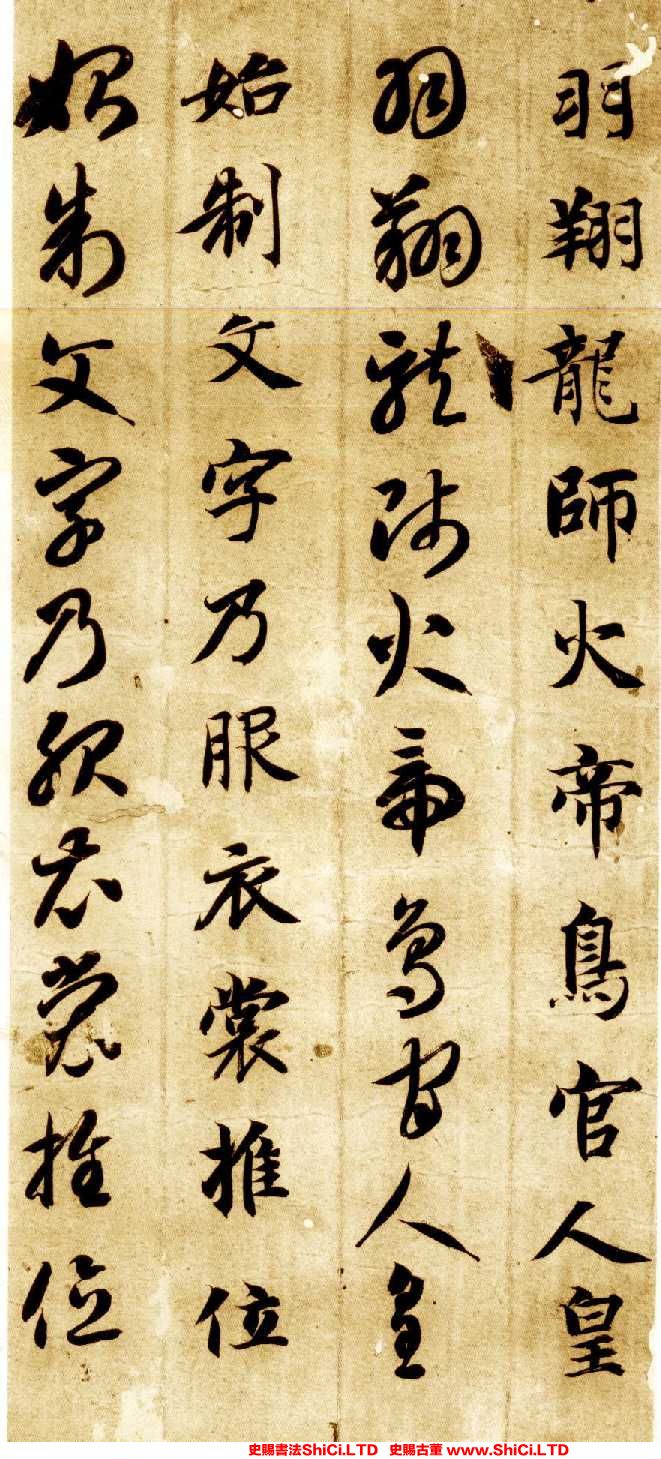 羽翔龍師火帝鳥官人皇
羽翔龍師火帝鳥官人皇
始制文字乃服衣裳推位
始制文字乃服衣裳推位
史賜書法ShiCi.LTD 史賜古董 www.ShiCi.LTD